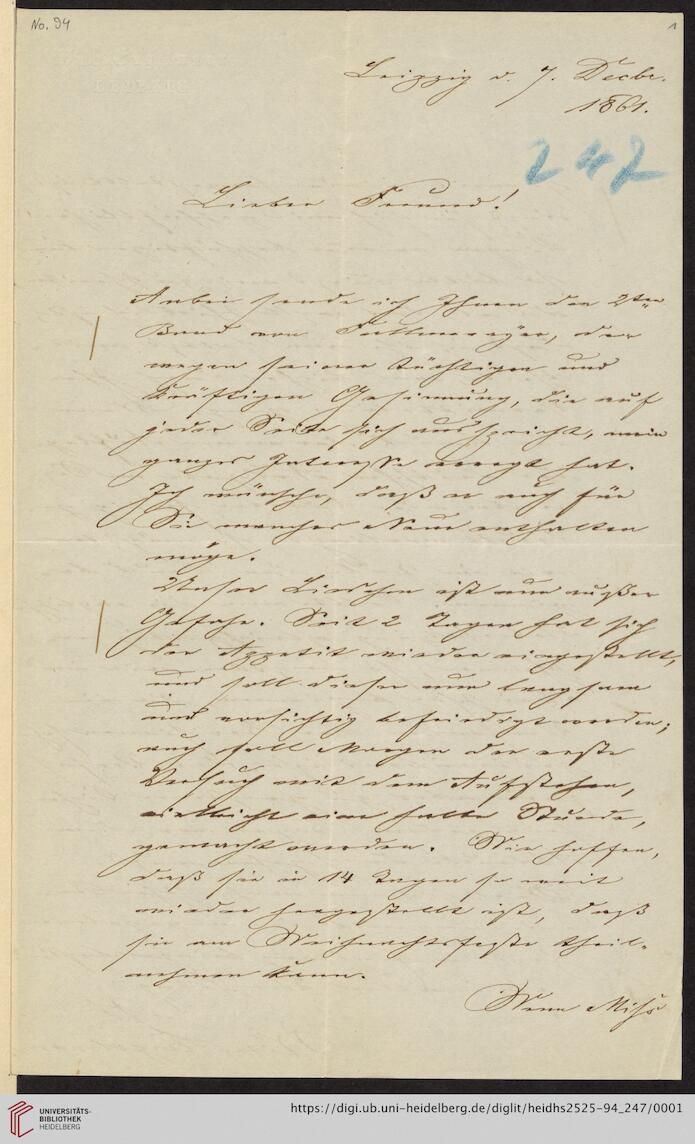 No. 94
1
Leipzig d. 7. Decbr.
1861.
247
Lieber Freund!
Anbei sende ich Ihnen den 2ten
Band von Fallmerayer, der
wegen seiner tüchtigen und
kräftigen Gesinnung, die auf
jeder Seite sich ausspricht, mein
ganzes Interesse erregt hat.
Ich wünsche, daß er auch für
Sie manches Neue enthalten
möge.
Unser Lieschen ist nun außer
Gefahr. Seit 2 Tagen hat sich
der Appetit wieder eingestellt,
und soll dieser nun langsam
und vorsichtig befriedigt werden;
auch soll Morgen der erste
Versuch mit dem Aufstehen,
vielleicht eine halbe Stunde,
gemacht werden. Wir hoffen,
daß sie in 14 Tagen so weit
wieder hergestellt ist, daß
sie am Weihnachtsfeste theil-
nehmen kann.
Wenn
UNIVERSITÄTS-
BIBLIOTHEK
HEIDELBERG
https://digi.ub.uni-heidelberg.de/diglit/heidhs2525-94_247/0001